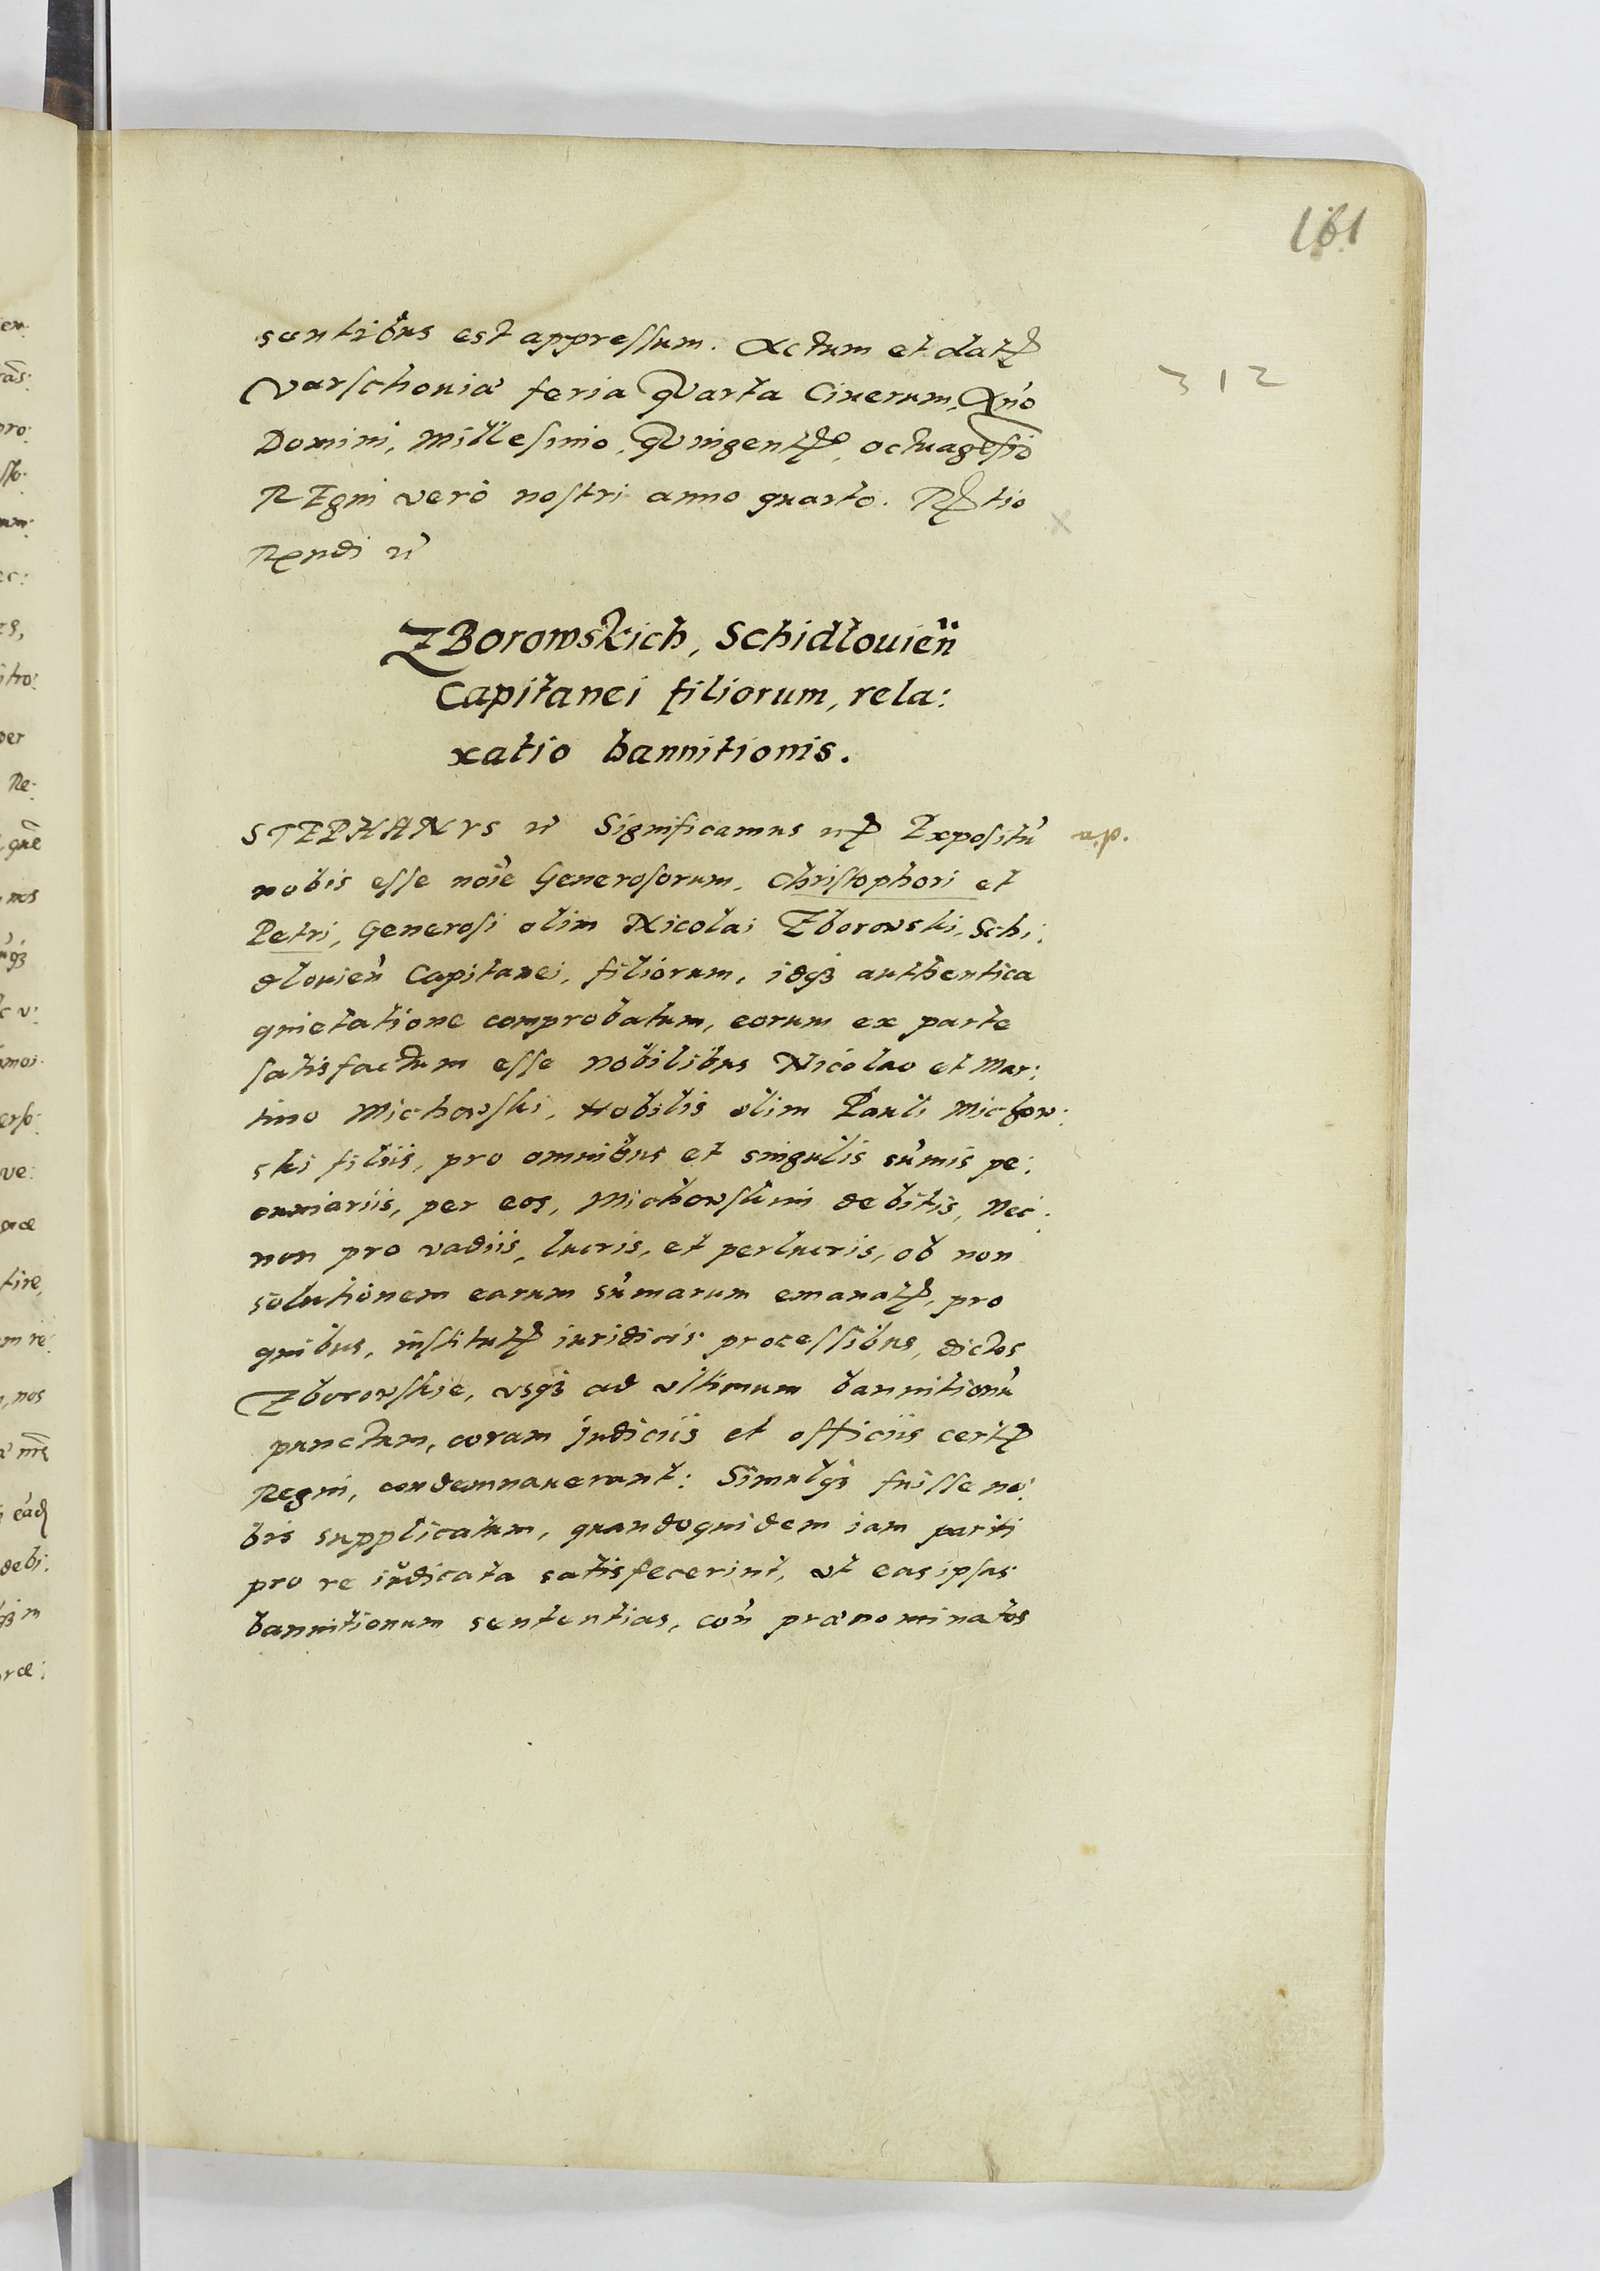 161
sentibus est appressum. Actum et datꝭ
Varschouiæ feria Quarta Cinerum, Año
Domini, Millesimo, Quingentꝭo, octuagesiō
REgni verò nostri anno quarto. Rꝭtio
312
Rꝑndi rc̃
ZBorowskich, Schidlouień
Capitanei filiorum, rela:
xatio bannitionis.
STEPHANVS rc̃ Significamus rꝭ Expositū
nobis esse noīe Generosorum, Christophori et
Petri, Generosi olim Nicolai Zborowski, Schi:
dlouień Capitanei, filiorum, idqȝ authentica
quietatione comprobatum, eorum ex parte
satisfactum esse Nobilibus Nicolao et Mar:
tino Michowski, Nobilis olim Pauli Michow:
ski filiis, pro omnibus et singulis sūmis pe:
cuniariis, per eos, Michowskim debitis, Nec:
non pro vadiis, lucris, et perlucris, ob non
solutionem earum sūmarum emanatꝭ, pro
quibus, institutꝭ iuridicis processibus, dictos
Zborowskie, vsqȝ ad vltimum bannitionū
punctum, coram Judiciis et officiis certꝭ
Regni, condemnauerant: Simulqȝ fuisse no:
bis supplicatum, quandoquidem iam pariti
pro re iudicata satisfecerint, vt eas ipsas
bannitionum sententias, coń prænominatos